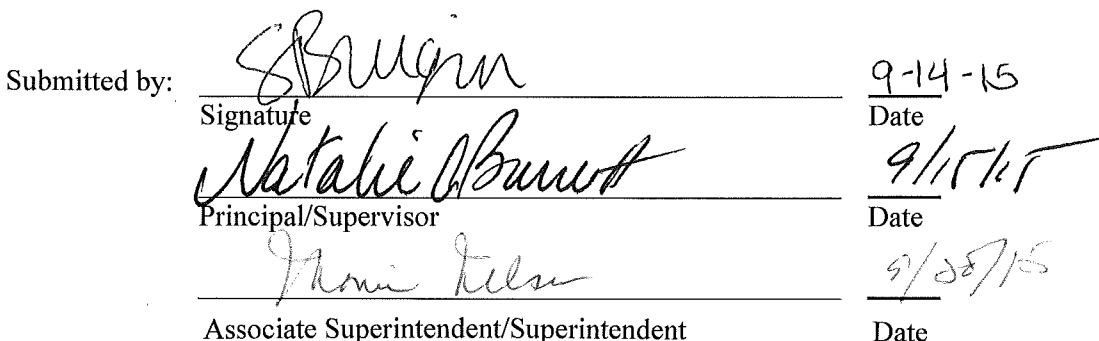 Submitted by:
9-14-15
Signature
Date
Natalie Burnett
9/15/15
Principal/Supervisor
Date
Nelson
Associate Superintendent/Superintendent
Date